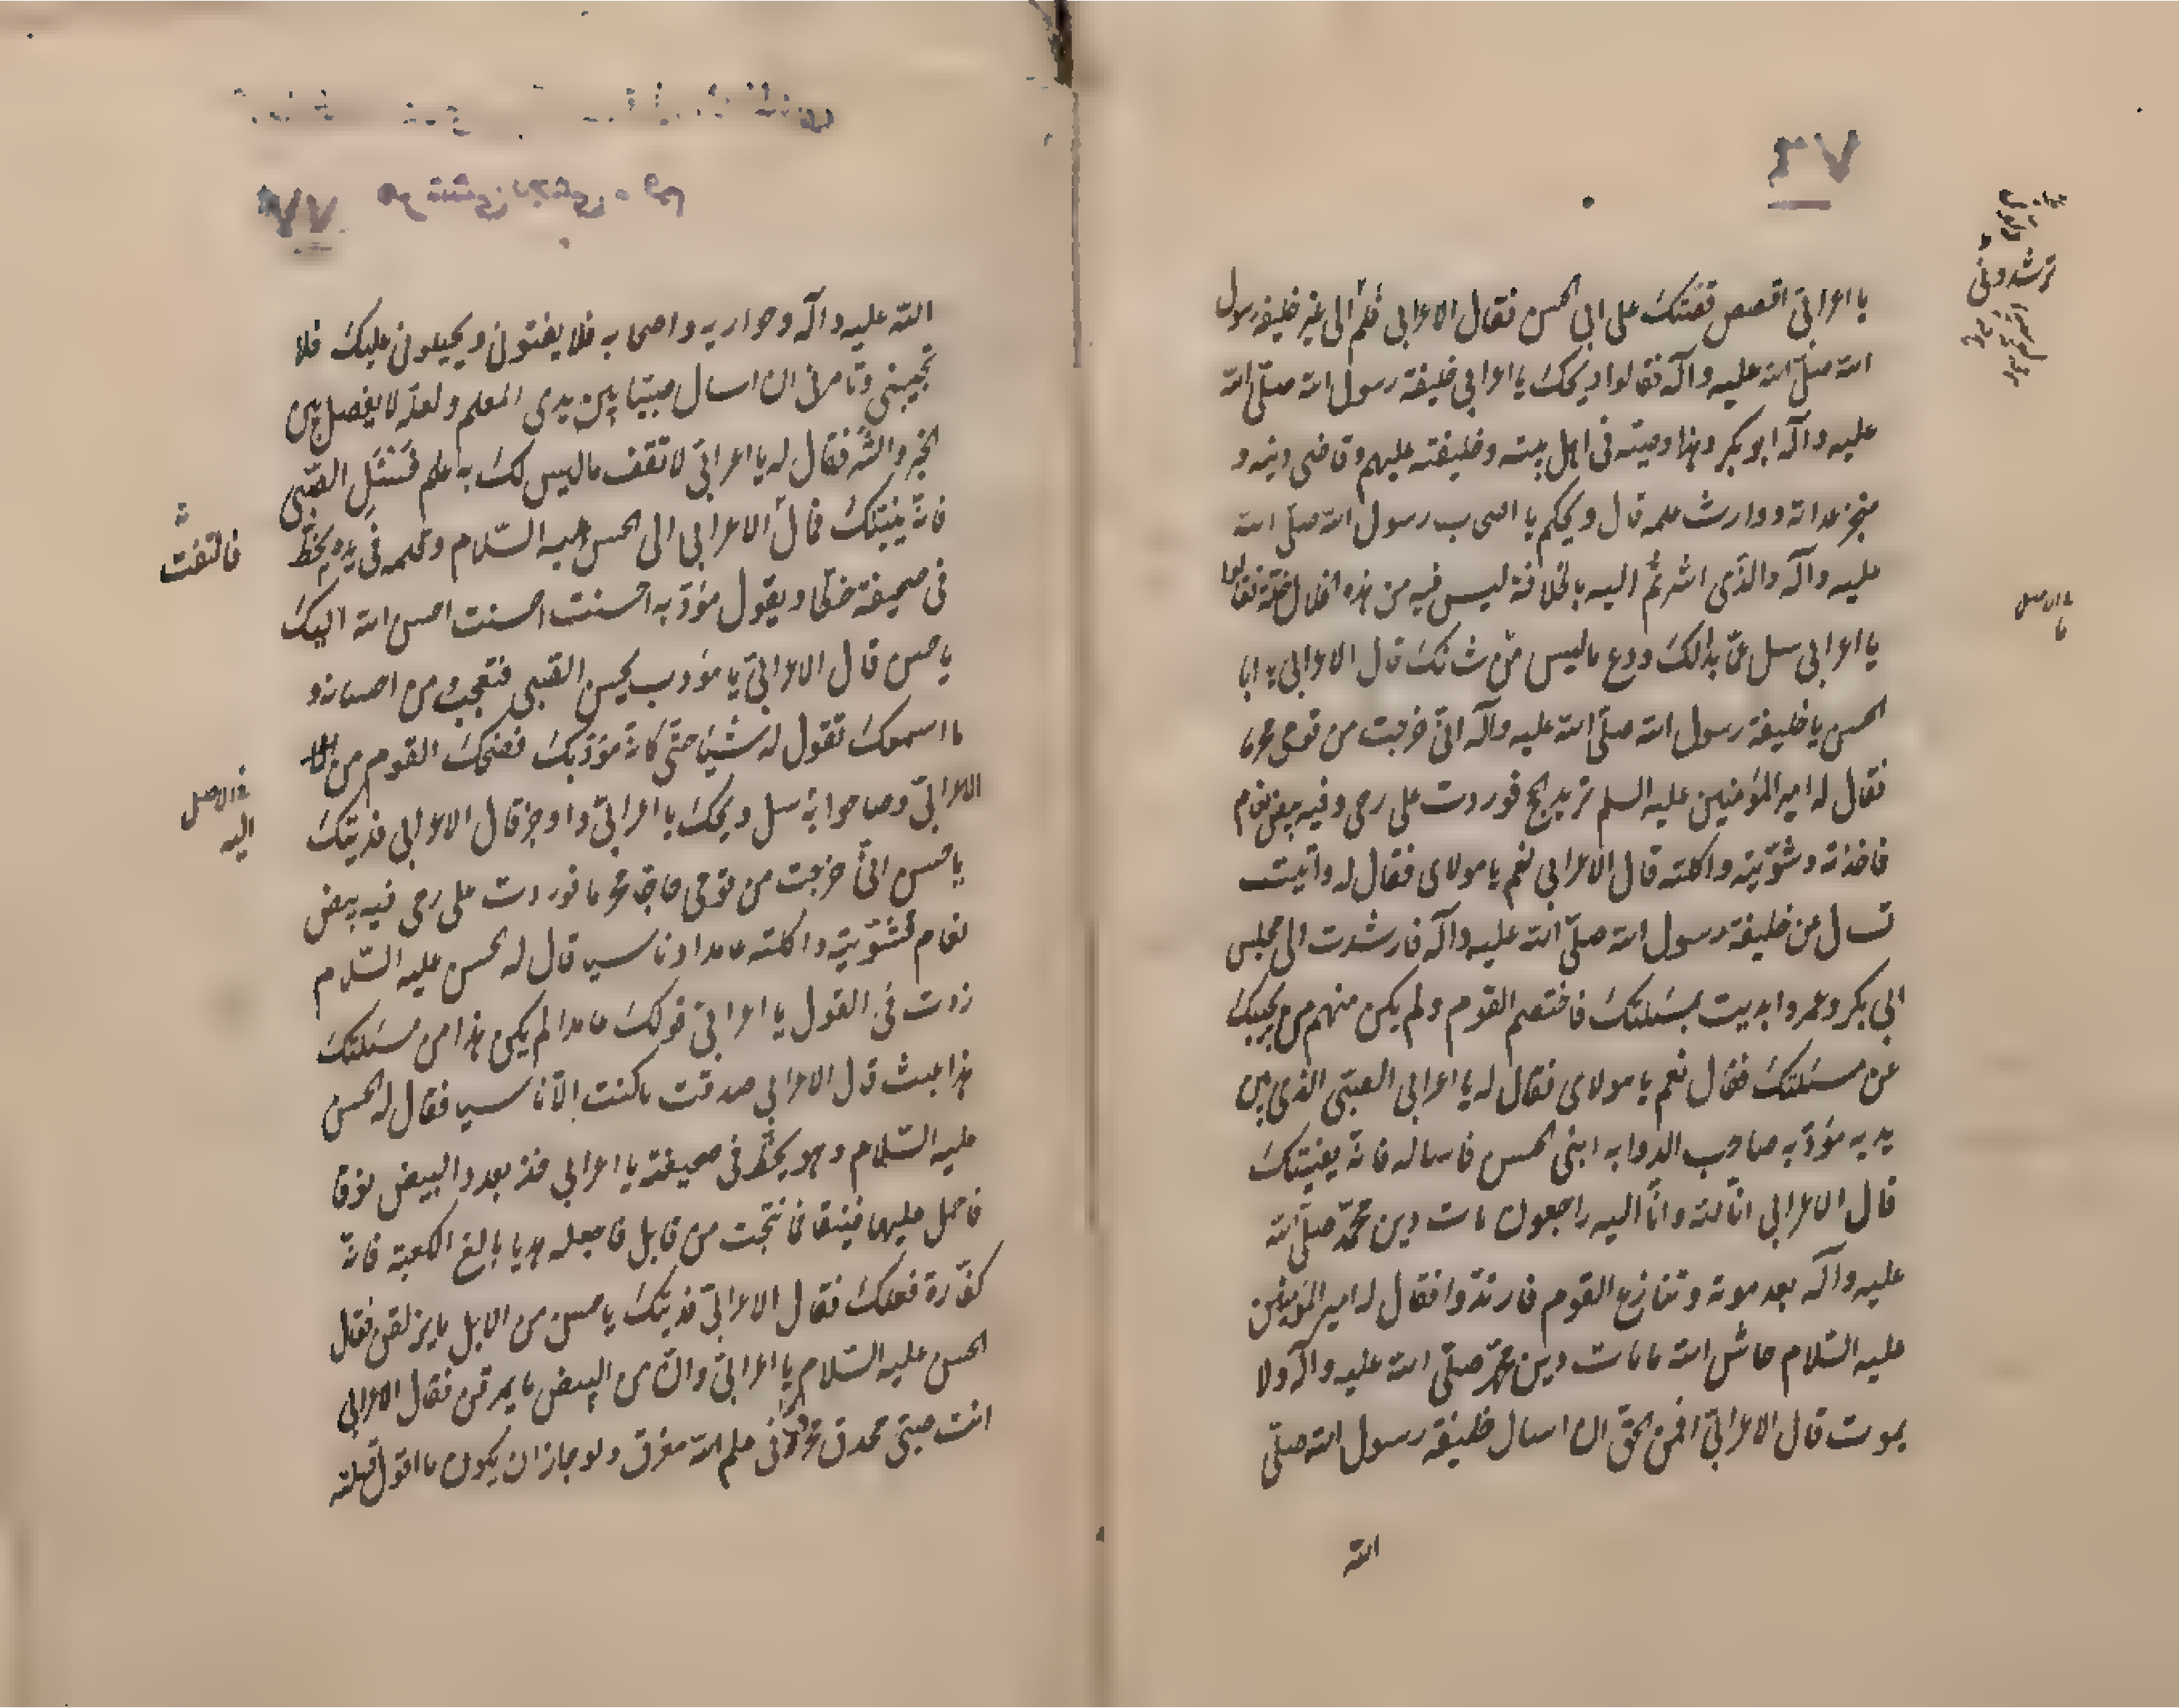 ٧٦
يا اعرابيّ اقصص قصّتك على ابى الحسن فقال الاعرابى فلم الى غير خليفة رسول
اللّه صلّى اللّه عليه وآله فقالوا ويحك يا اعرابى خليفة رسول اللّه صلّى اللّه
عليه وآله ابو بكر وهذا وصيّه فى اهل بيته وخليفته عليهم وقاضى دينه و
منجز عداته ووارث علمه قال ويحكم يا اصحاب رسول اللّه صلّى اللّه
عليه وآله والذّى اشرتم اليه بالخلافة ليس فيه من هذه الخلال خلّة فقالوا
يا اعرابى سل عمّا بدالك ودع ما ليس من شانك قال الاعرابى يا ابا
الحسن يا خليفة رسول اللّه صلّى اللّه عليه وآله انّى خرجت من قومى محرما
فقال له امير المؤمنين عليه السلم تريد الحج فوردت على دحى وفيه بيض نعام
فاخذته وشوّيته واكلته قال الاعرابى نعم يا مولاى فقال له واتيت
تسال عن خليفة رسول اللّه صلّى اللّه عليه وآله فارشدت الى مجلس
ابى بكر وعمر وابديت بمسئلتك فاختصم القوم ولم يكن منهم من يجيبك
عن مسئلتك فقال نعم يا مولاى فقال له يا اعرابى الصبّى الذى بين
يديه مؤدّبه صاحب الدوابه ابنى الحسن فاساله فانّه يفتيك
قال الاعرابى انّا للّه وانّا اليه راجعون مات دين محمّد صلّى اللّه
عليه وآله بعد موته وتنازع القوم فارتدّوا فقال له امير المؤمنين
عليه السّلام حاش اللّه ما مات دين محمّد صلّى اللّه عليه وآله ولا
يموت قال الاعرابىّ افمن الحقّ ان اسال خليفة رسول اللّه صلّى
اللّه
ترشدونى
فى الاصل
٧٧
اللّه عليه وآله وحواريه واصحابه فلا يفتونى ويحيلونى عليك فلا
تجيبنى وتامرنى ان اسال صبيّا بين يدى المعلم ولعلّه لا يفصل بين
الخير والشّر فقال له يا اعرابىّ لا تقف ما ليس لك به علم فسئل الصّبى
فانّه ينبّئك فمال الاعرابى الى الحسن عليه السّلام وقلمه فى يده يخطّ
فى صحيفة خطّا ويقول مؤدّبه احسنت احسنت احسن اللّه اليك
يا حسن قال الاعرابىّ يا مؤدب يحسن الصّبى فتعجب من احسانه و
ما اسمعك تقول له شيئا حتّى كانّه مؤدّبك فضحك القوم من
الاعرابىّ وصاحوا به سل ويحك يا اعرابىّ واوجز قال الاعرابى فديتك
يا حسن انّى خرجت من قومى حاجا محرما فوردت على دحى فيه بيض
نعام فشوّيته واكلته عامدا وناسيا قال له الحسن عليه السّلام
زدت فى القول يا اعرابىّ قولك عامدا لم يكن هذا من مسئلتك
هذا عبث قال الاعرابى صدقت ما كنت الّا ناسيا فقال له الحسن
عليه السّلام وهو يخطّ فى صحيفته يا اعرابى خذ بعدد البيض نوقا
فاحمل عليها فنيقا فما نتجت من قابل فاجعله هديا بالغ الكعبة فانّه
كفّارة فعلك فقال الاعرابىّ فديتك يا حسن من الابل ما يزلقن فقال
الحسن عليه السّلام يا اعرابىّ وانّ من البيض ما يمرقن فقال الاعرابى
انت صبىّ محدق محرر فى علم اللّه مغرق ولو جاز ان يكون ما اقول قلته
فالتفت
فى الاصل
اليه